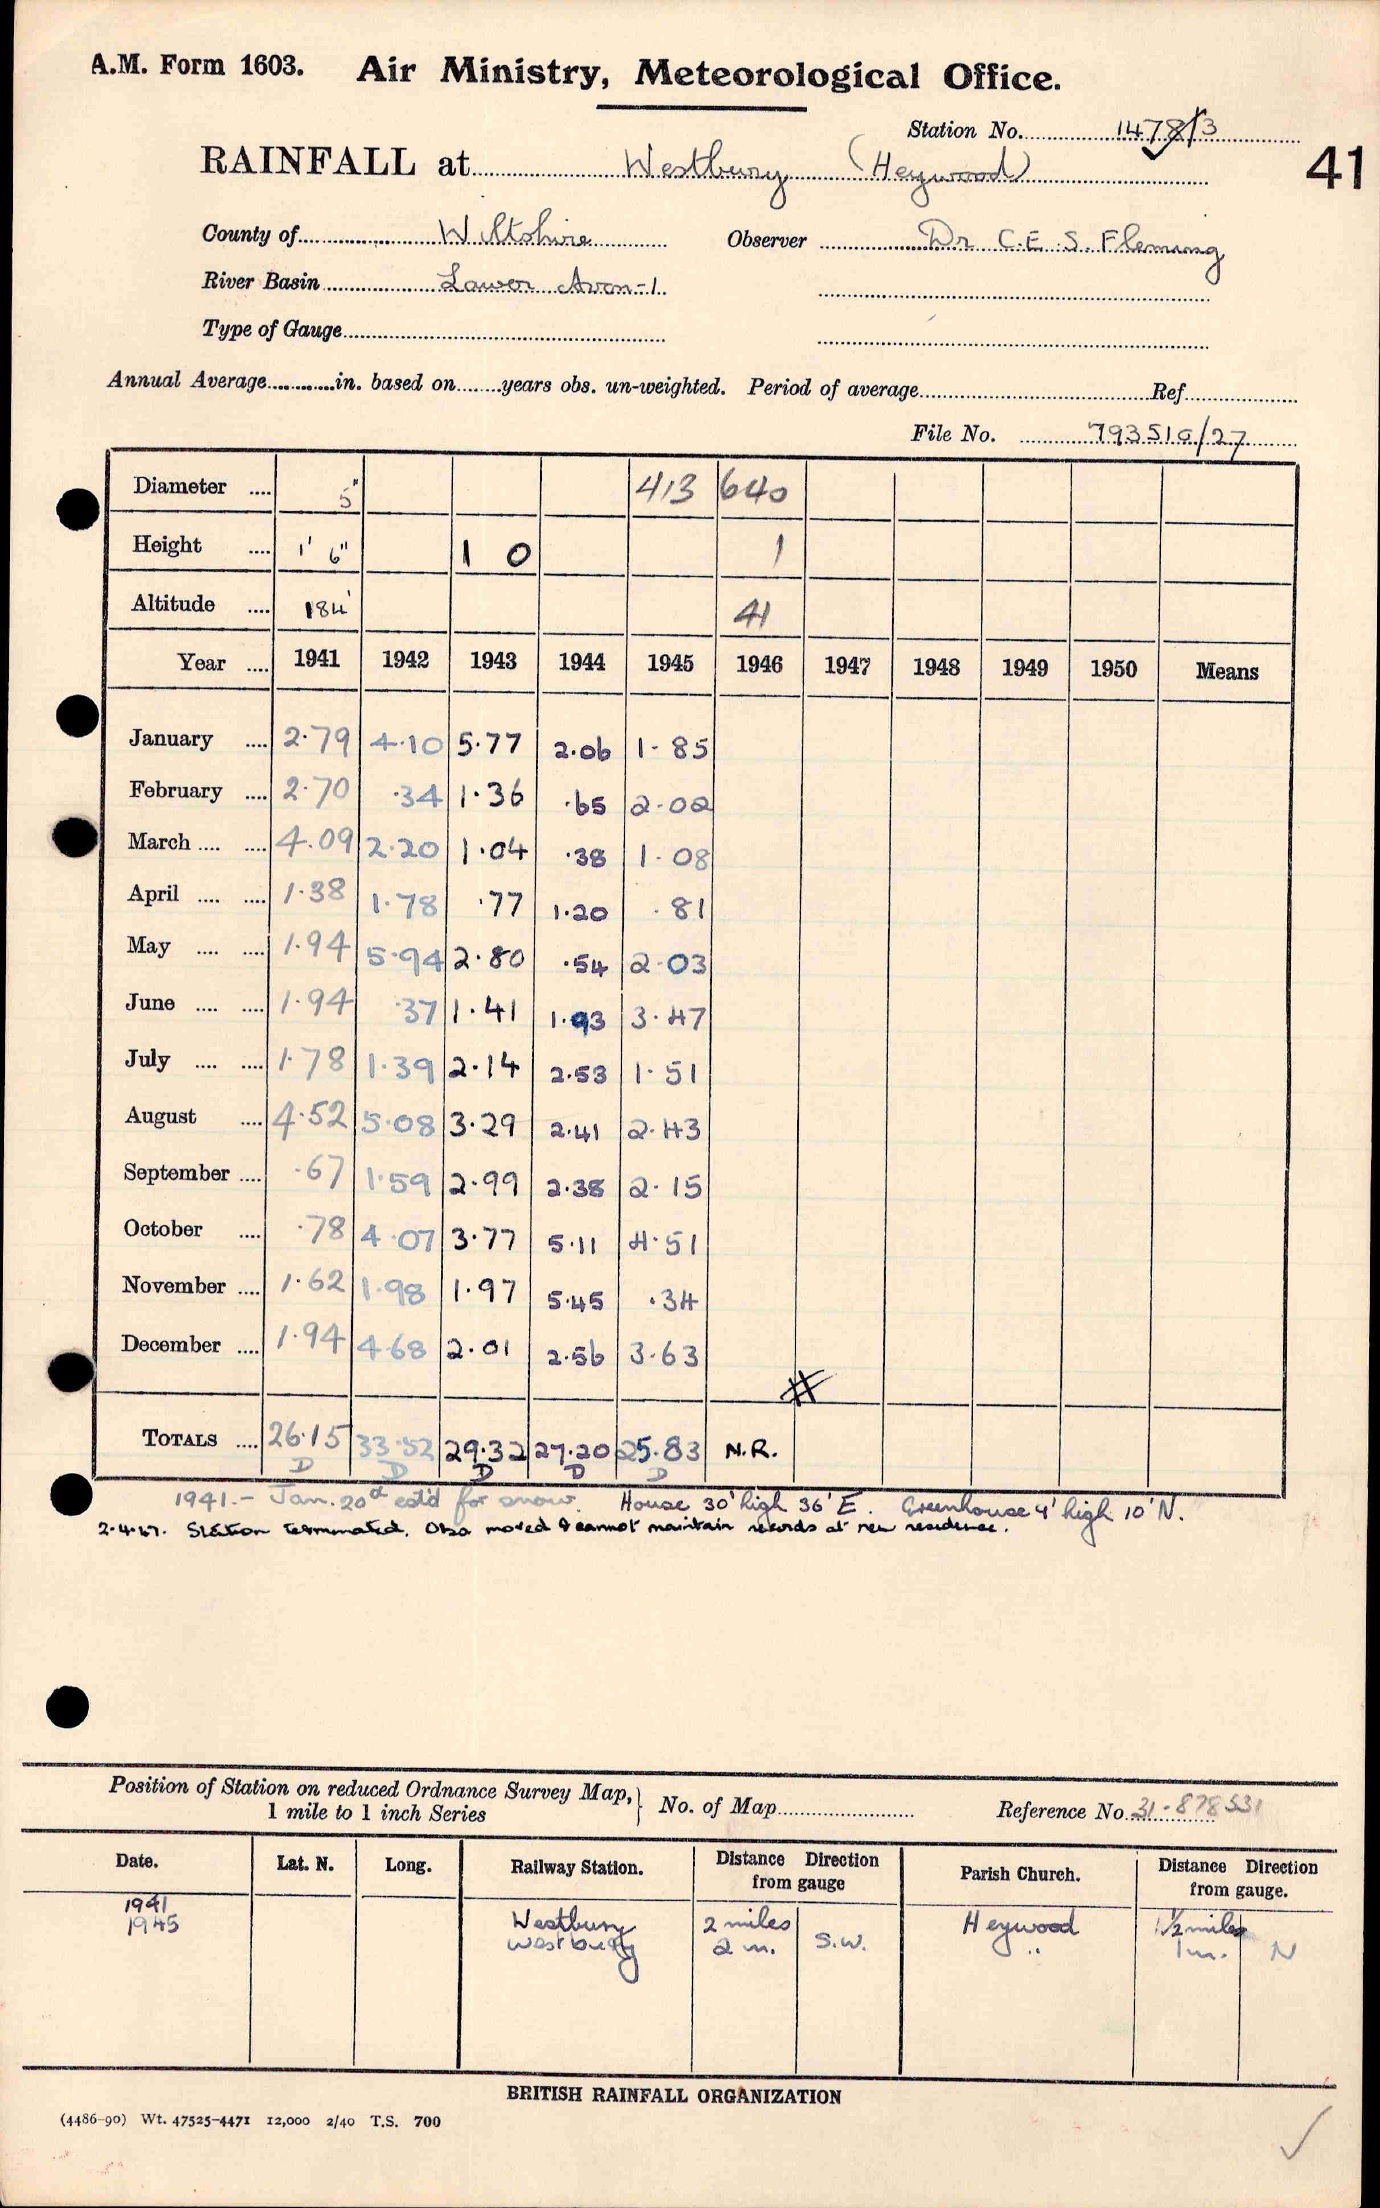 A.M. Form 1603. Air Ministry, Meteorological Office.
Station No. 1478/3
41
RAINFALL at Westbury (Heywood)
County of Wiltshire Observer Dr C.E.S. Fleming
River Basin Lower Avon-1
Type of Gauge
Annual Average in. based on years obs. un-weighted. Period of average Ref
File No. 793510/27
Diameter .... 5" 413 640
Height .... 1' 6" 1 0 1
Altitude .... 184' 41
Year .... 1941 1942 1943 1944 1945 1946 1947 1948 1949 1950 Means
January .... 2.79 4.10 5.77 2.06 1.85
February .... 2.70 .34 1.36 .65 2.02
March .... .... 4.09 2.20 1.04 .38 1.08
April .... .... 1.38 1.78 .77 1.20 .81
May .... .... 1.94 5.94 2.80 .54 2.03
June .... .... 1.94 .37 1.41 1.93 3.47
July .... .... 1.78 1.39 2.14 2.53 1.51
August .... 4.52 5.08 3.29 2.41 2.43
September .... .67 1.59 2.99 2.38 2.15
October .... .78 4.07 3.77 5.11 4.51
November .... 1.62 1.98 1.97 5.45 .34
December .... 1.94 4.68 2.01 2.56 3.63
TOTALS .... 26.15 33.52 29.32 27.20 25.83 N.R.
D D D D D
1941.- Jan. 20 est'd for snow. House 30' high 36' E. Greenhouse 4' high 10' N.
2.4.47. Station terminated. Obsr moved & cannot maintain records at new residence.
Position of Station on reduced Ordnance Survey Map, 1 mile to 1 inch Series No. of Map Reference No. 31-878531
Date. Lat. N. Long. Railway Station. Distance Direction from gauge Parish Church. Distance Direction from gauge.
1941 Westbury 2 miles Heywood 1½ miles
1945 Westbury 2 m. S.W. " 1 m. N
BRITISH RAINFALL ORGANIZATION
(4486-90) Wt. 47525-4471 12,000 2/40 T.S. 700